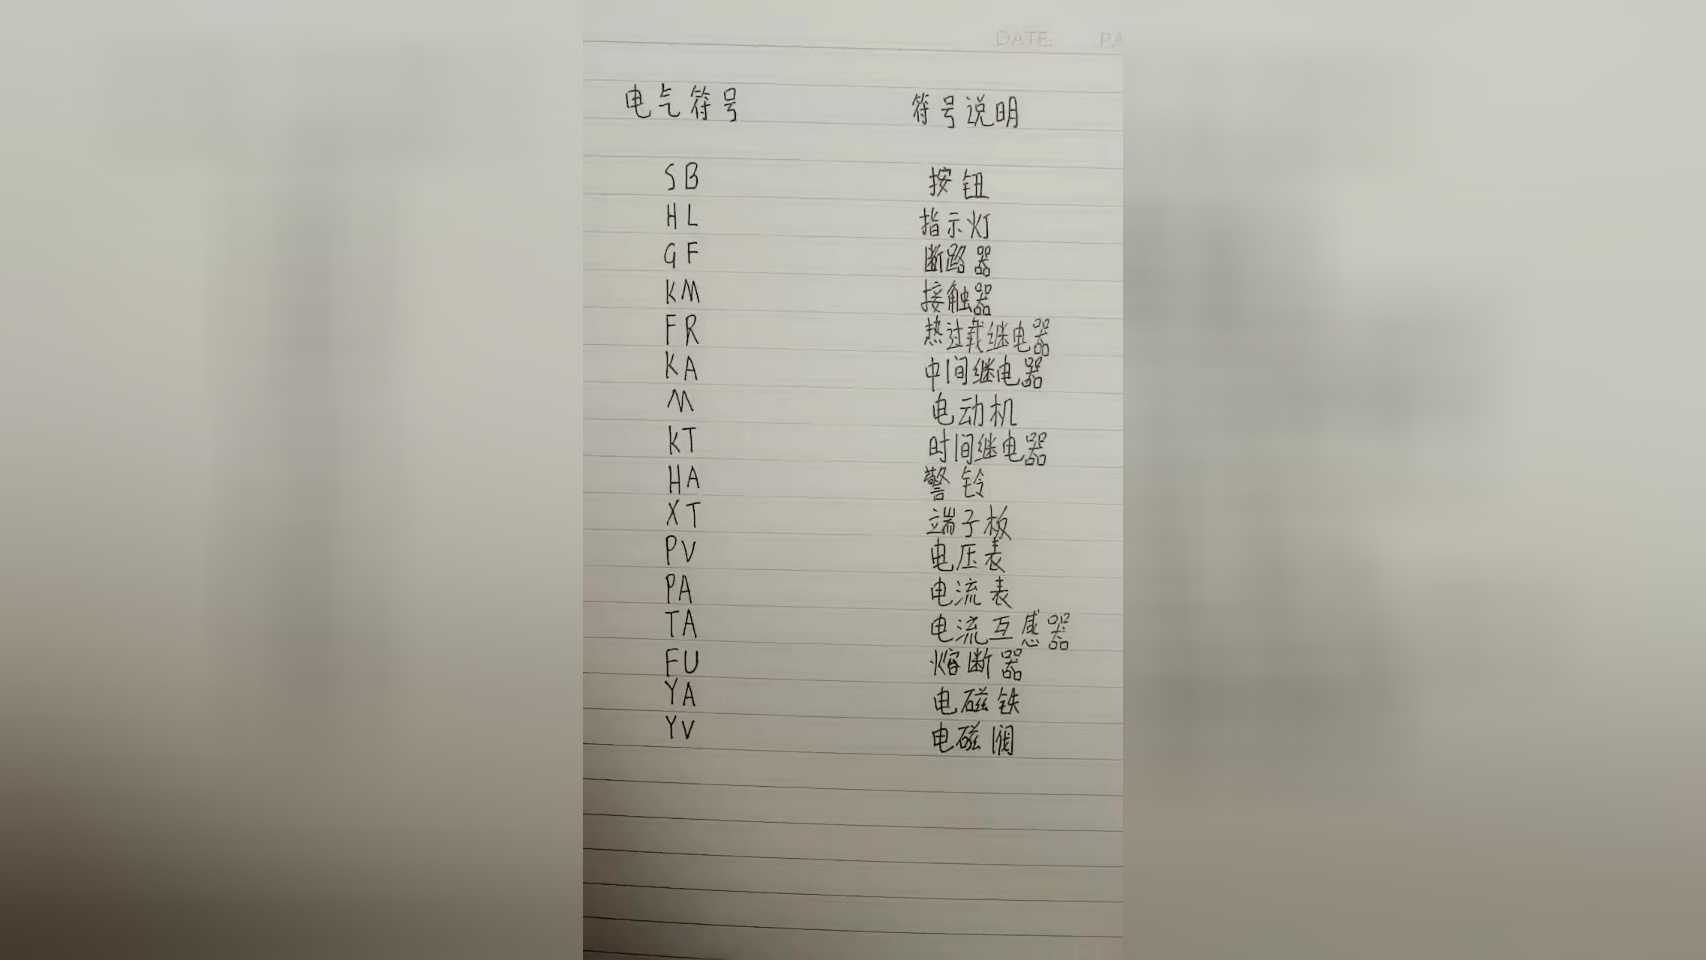 DATE. PA
电气符号 符号说明
SB 按钮
HL 指示灯
GF 断路器
KM 接触器
FR 热过载继电器
KA 中间继电器
M 电动机
KT 时间继电器
HA 警铃
XT 端子板
PV 电压表
PA 电流表
TA 电流互感器
FU 熔断器
YA 电磁铁
YV 电磁阀